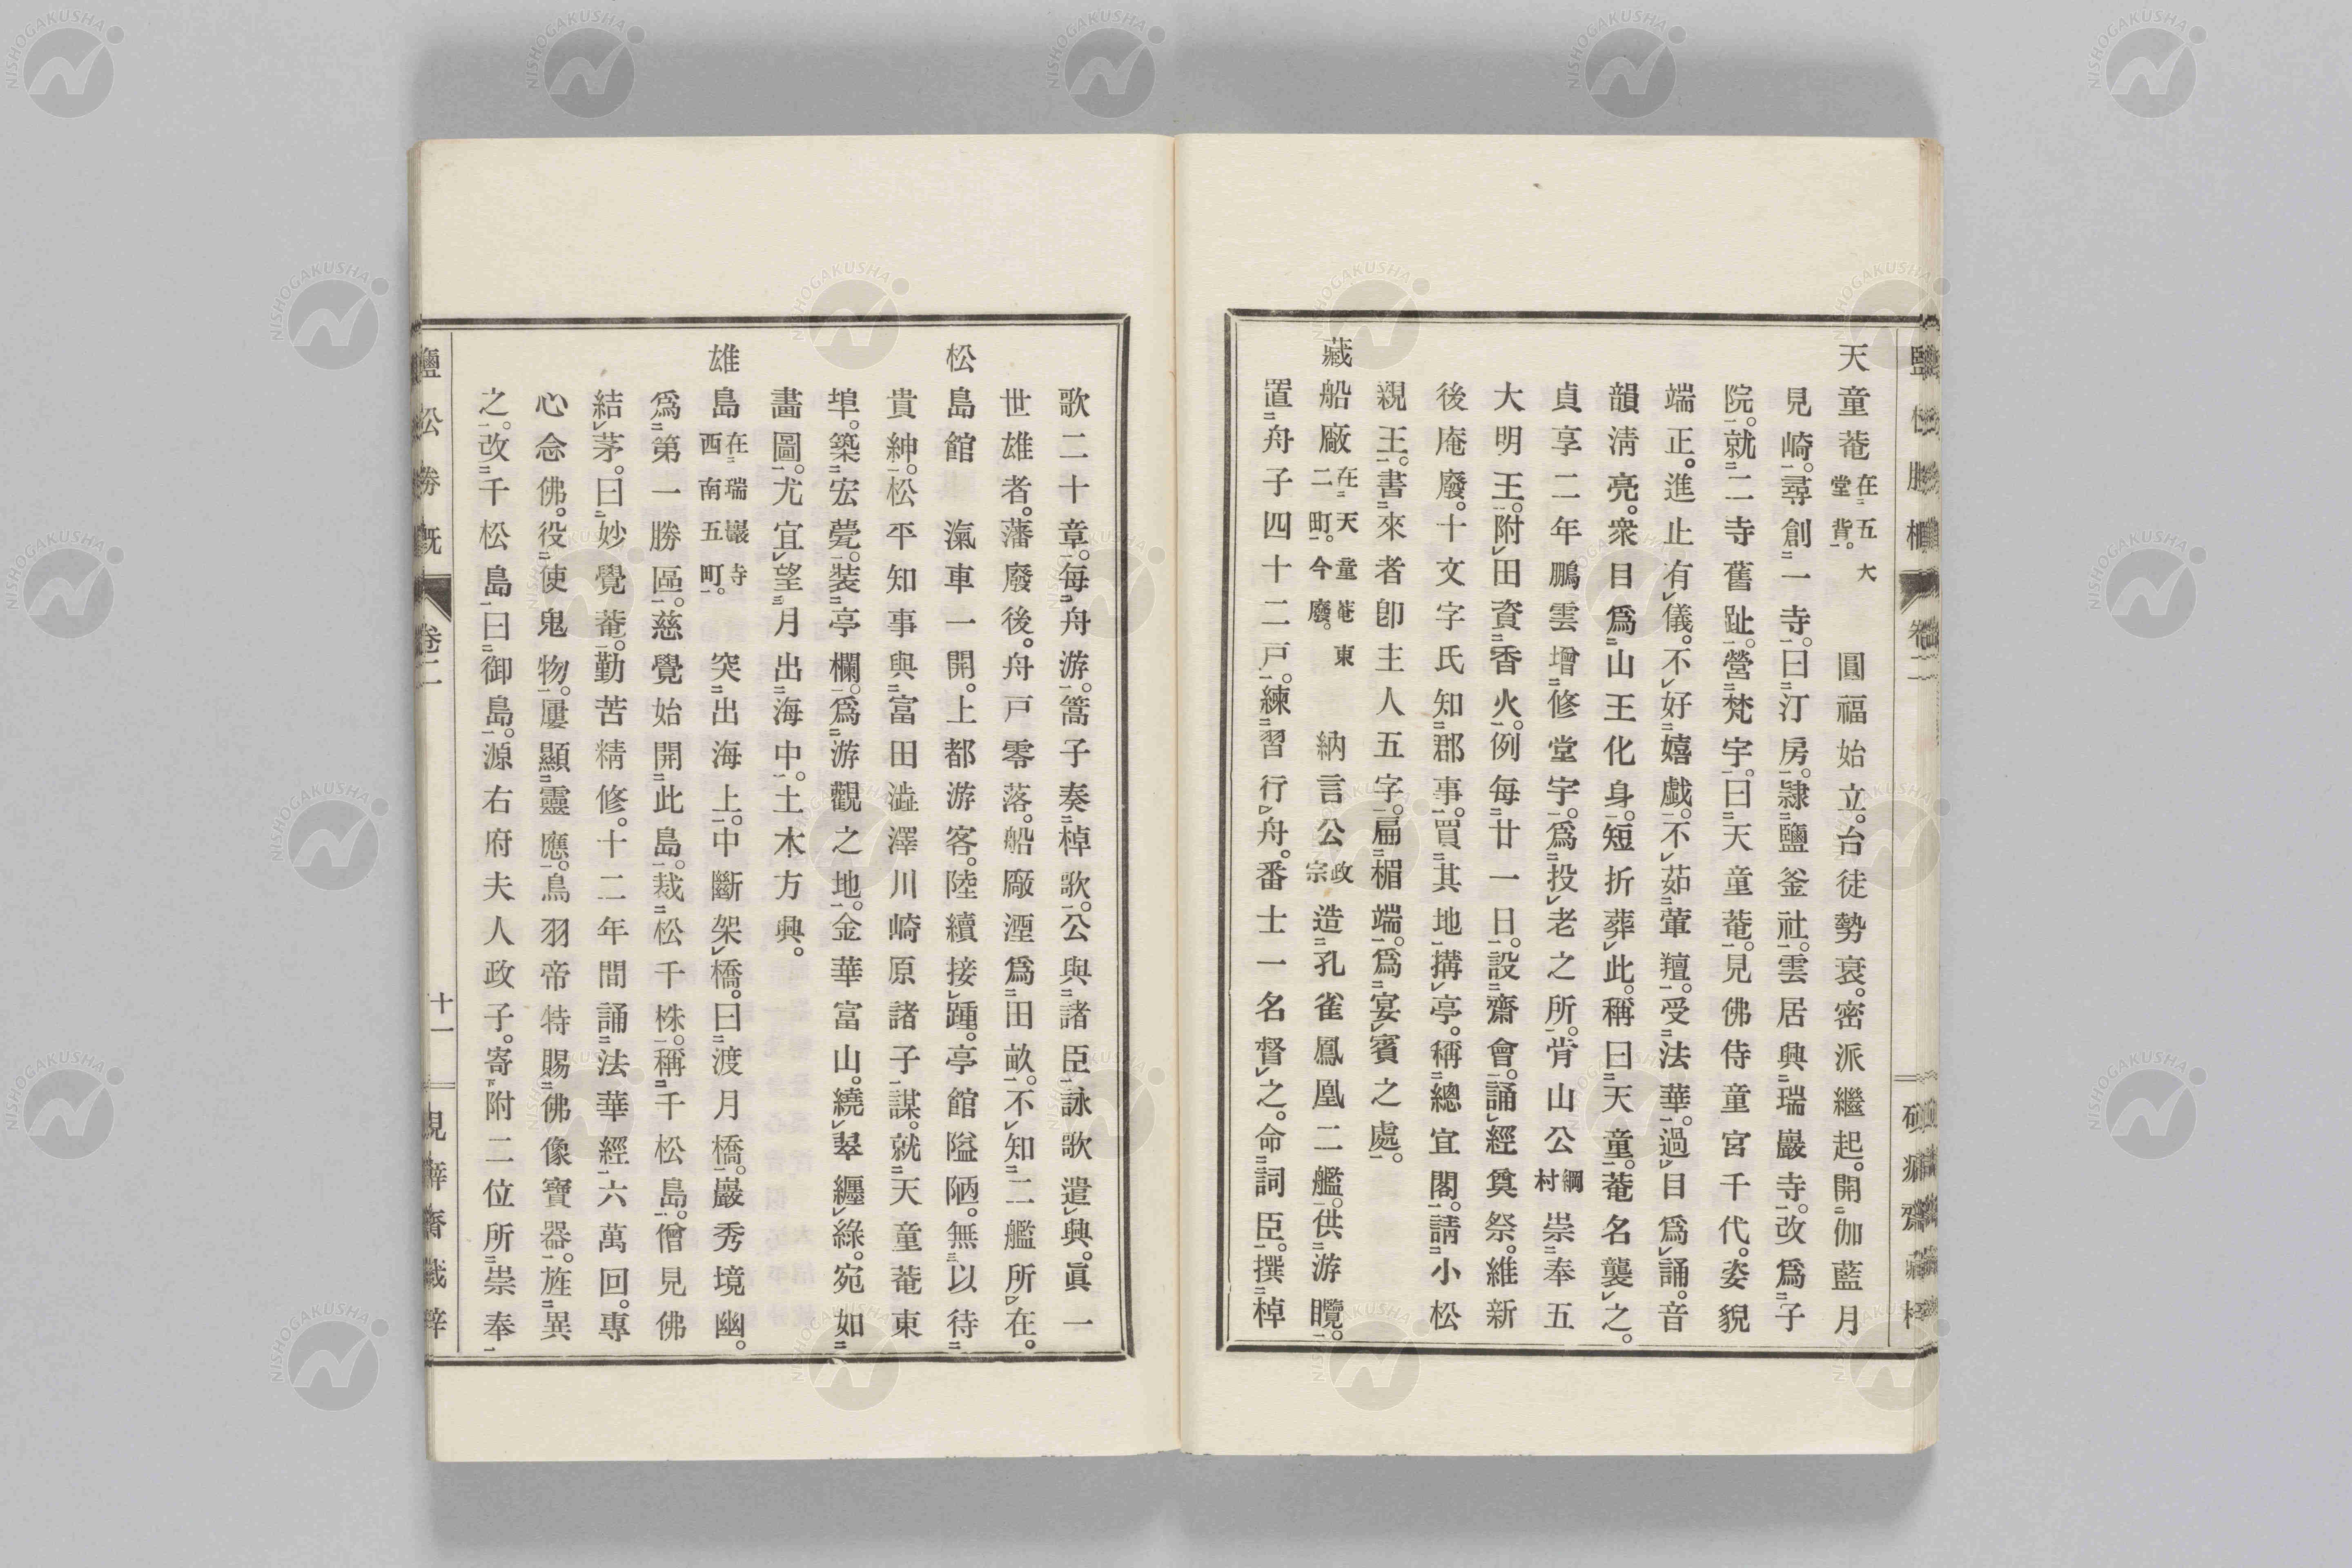 天童菴在五大堂背。圓福始立。台徒勢衰。密派繼起。開伽藍月
見崎。尋創一寺。曰汀房。隷鹽釜社。雲居興瑞巖寺。改爲子
院。就二寺舊趾。營梵宇。曰天童菴。見佛侍童宮千代。姿貌
端正。進止有儀。不好嬉戲。不茹葷羶。受法華。過目爲誦。音
韻淸亮。衆目爲山王化身。短折葬此。稱曰天童。菴名襲之。
貞享二年鵬雲增修堂宇。爲投老之所。肯山公綱村崇奉五
大明王。附田資香火。例每廿一日。設齋會。誦經奠祭。維新
後庵廢。十文字氏知郡事。買其地搆亭。稱總宜閣。請小松
親王。書來者卽主人五字。扁楣端。爲宴賓之處。
藏船廠在天童菴東二町。今廢。納言公政宗造孔雀鳳凰二艦。供游覽。
置舟子四十二戸。練習行舟。番士一名督之。命詞臣。撰棹
歌二十章。每舟游。篙子奏棹歌。公與諸臣詠歌遣興。眞一
世雄者。藩廢後。舟戸零落。船廠湮爲田畝。不知二艦所在。
松島館 滊車一開。上都游客。陸續接踵。亭館隘陋。無以待
貴紳。松平知事與富田澁澤川崎原諸子謀。就天童菴東
埠。築宏甍。裝亭欄。爲游觀之地。金華富山。繞翠纒綠。宛如
畵圖。尤宜望月出海中。土木方興。
雄島在瑞巖寺西南五町。突出海上。中斷架橋。曰渡月橋。巖秀境幽。
爲第一勝區。慈覺始開此島。裁松千株。稱千松島。僧見佛
結茅。曰妙覺菴。勤苦精修。十二年間誦法華經六萬回。專
心念佛。役使鬼物。屢顯靈應。鳥羽帝特賜佛像寶器。旌異
之。改千松島曰御島。源右府夫人政子。寄附二位所崇奉
鹽松勝槪 卷二 十一